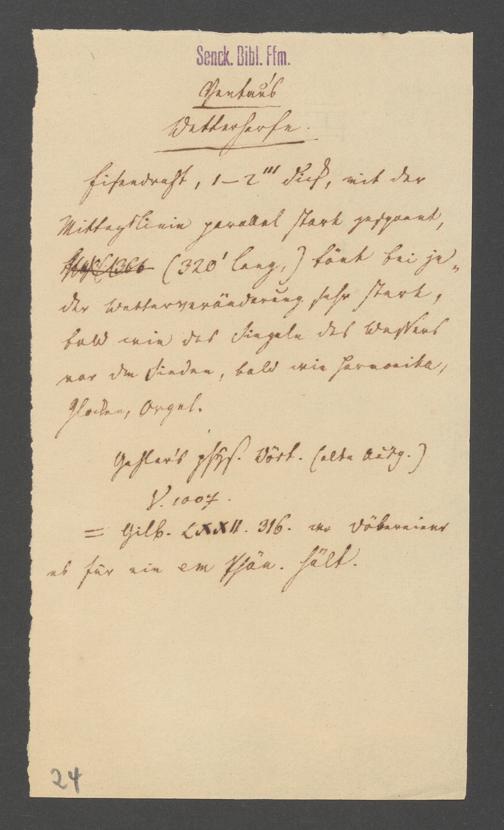 Senck. Bibl. Ffm.
Ventan's
Wetterharfe.
Eisendraht, 1–2''' dick, mit der
Mittagslinie parallel stark gespannt,
(320' lang,) tönt bei je„
der Wetterveränderung sehr stark,
bald wie das Singeln des Wassers
vor dem Sieden, bald wie Harmonika,
Glocken, Orgel.
Gehler's phys. Wört. (alte Ausg.)
V. 1007.
= Gilb. LXXII. 316. wo Döbereiner
es für ein em Phän. hält.
24